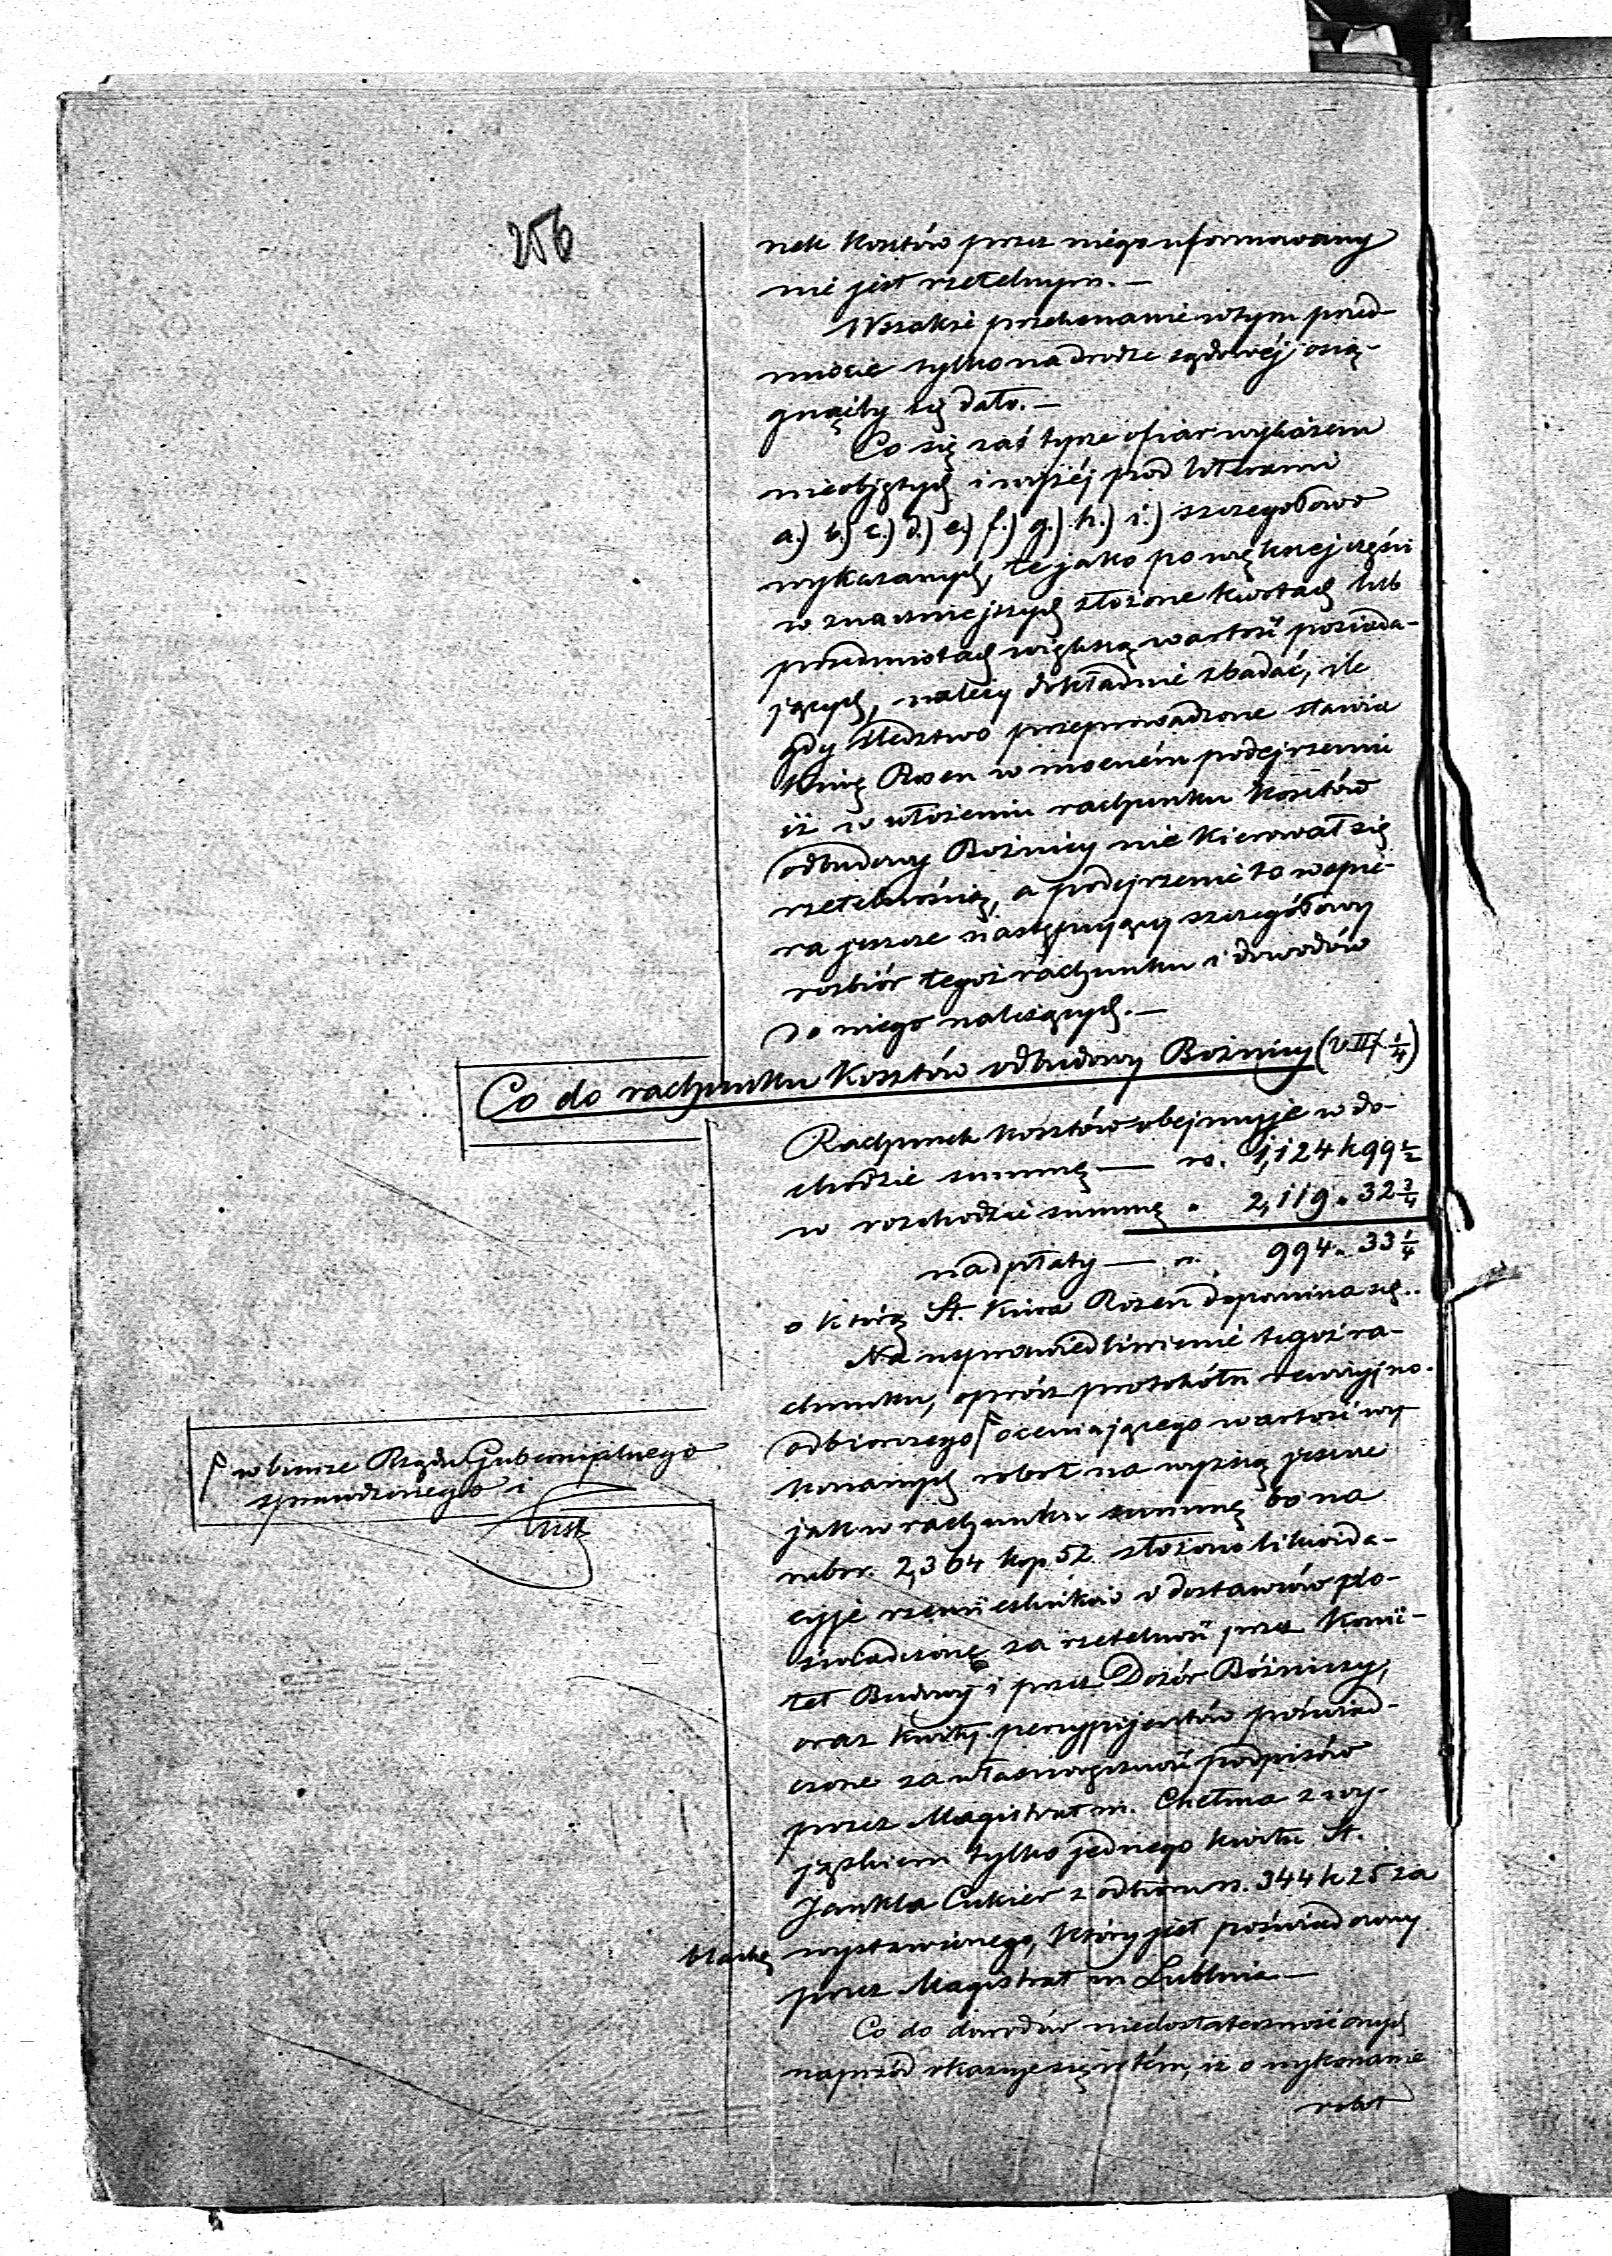 256
nek kosztów przez niego uformowany
nie jest rzetelnym. —
Wszakże przekonanie w tym przed-
miocie tylko na drodze sądowéj osią-
gnąćby się dało. —
Co się zaś tycze ofiar wykazem
nieobjętych i wyżéj pod literami
a.) b.) c.) d.) e.) f.) g.) h.) i.) szczegółowo
wykazanych, te jako po większej części
w znaczniejszych złożone kwotach lub
przedmiotach większą wartość posiada-
jących, należy dokładnie zbadać, ile
gdy śledztwo przeprowadzone stawia
Kiwę Rozen w mocném podejrzeniu
iż w ułożeniu rachunku kosztów
odbudowy Bożnicy nie kierował się
rzetelnością, a podejrzenie to wspie-
ra jeszcze następujący szczegółowy
rozbiór tegoż rachunku i dowodów
do niego należących. —
Co do rachunku kosztów odbudowy Bożnicy (v. II/ 1/4)
Rachunek kosztów obejmuje w do-
chodzie summę — rs. 1,124 k 99 1/2
w rozchodzie summę " 2,119 " 32 3/4
nadpłaty — rs. 994 " 33 1/4
o którą St. Kiwa Rozen dopomina się..
Na usprawiedliwienie tegoż ra-
chunku, oprócz protokółu rewizyjno-
odbiorczego ꟼ oceniającego wartość wy
ꟼ w biurze Rządu Gubernijalnego
sprawdzonego i
konanych robót na wyższą jeszcze
jak w rachunku summę bo na
rubsr. 2,364 kop. 52. złożono likwida-
cyje rzemieślników i dostawców po-
świadczone za rzetelność przez Komi-
tet Budowy i przez Dozór Bóżniczy,
oraz kwity percypijentów poświad-
czone za własnoręczność podpisów
przez Magistrat m. Chełma z wy-
jątkiem tylko jednego kwitu St.
Jankla Cukier z odbioru rs. 344 k 25 za
blachę wystawionego, który jest poświadczony
przez Magistrat m Lublina —
Co do dowodów niedostateczność onych
naprzód okazuje się w tém, iż o wykonanie
robót